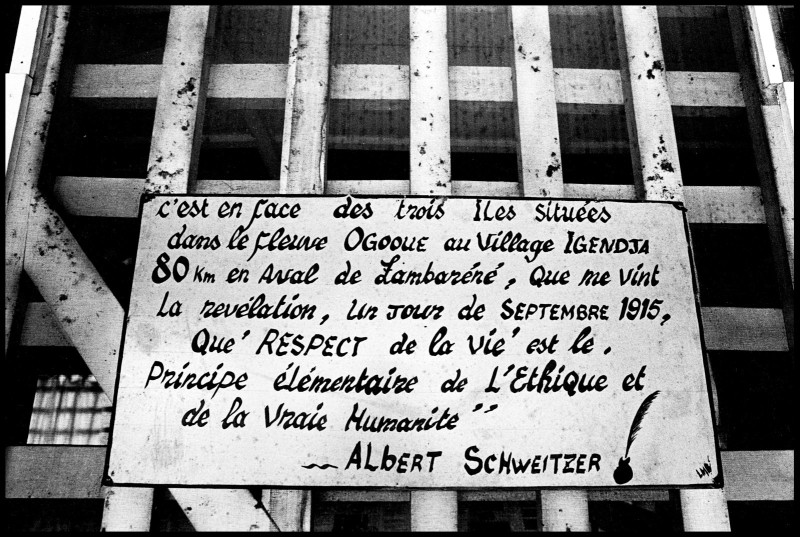 c'est en face des trois ILes situées
dans le fleuve OGOOUE au Village IGENDJA
80 Km en Aval de Lambaréné, Que me vint
La revélation, un jour de SEPTEMBRE 1915,
Que' RESPECT de la vie' est le.
Principe élémentaire de L'Ethique et
de la Vraie Humanite''
~ ALbERT SCHWEITZER